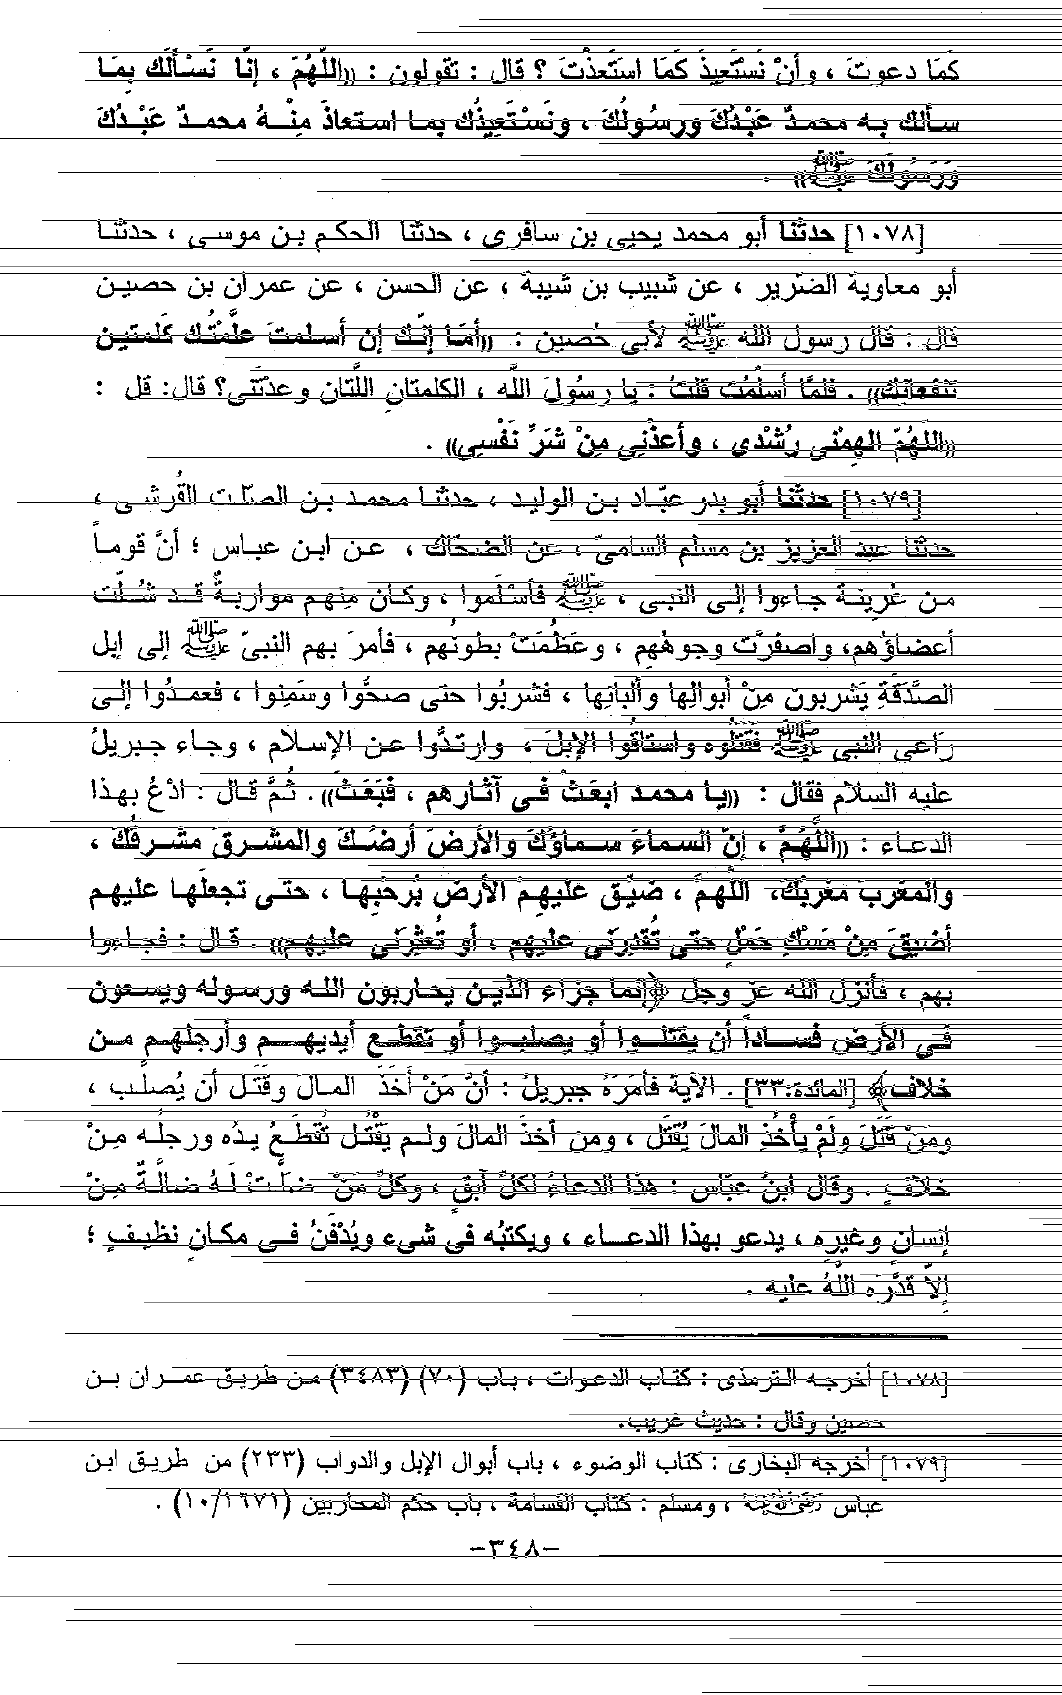 كَمَا دعوتَ ، وأنْ نَسْتَعِيذَ كَمَا اسْتَعذْتَ ؟ قال : تقولون : ((اللَّهُمَّ ، إنَّا نَسْأَلُكَ بِمَا
سألك به محمدٌ عَبْدُكَ ورسُولُكَ ، ونَسْتَعِيذُك بما استعاذَ مِنْهُ محمدٌ عَبْدُكَ
وَرَسُولُكَ ﷺ)) .
[١٠٧٨] حدثنا أبو محمد يحيى بن سافرى ، حدثنا الحكم بن موسى ، حدثنا
أبو معاوية الضرير ، عن شبيب بن شيبة ، عن الحسن ، عن عمران بن حصين
قال : قال رسول الله ﷺ لأبى حُصين : ((أمَا إنَّك إن أسلمتَ علَّمتُك كَلمتين
تنفعانك)) . فلمَّا أسلَمْتُ قلتُ : يا رسُولَ اللَّه ، الكلمتانِ اللَّتان وعدْتَنى؟ قال: قل :
((اللَّهُمَّ الهِمْنى رُشْدى ، وأعذْنِى مِنْ شَرِّ نَفْسِى)) .
[١٠٧٩] حدثنا أبو بدر عبَّاد بن الوليد ، حدثنا محمد بن الصلّت القُرشى ،
حدثنا عبد العزيز بن مسلم السامىّ ، عن الضحَّاك ، عن ابن عباس ؛ أنَّ قوماً
من عُرينة جاءوا إلى النبى ، ﷺ فأسْلَموا ، وكان مِنهم مواربةٌ قد شُلَّت
أعضاؤُهم، واصفرَّت وجوهُهم ، وعَظُمَتْ بطونُهم ، فأمرَ بهم النبىّ ﷺ إلى إبل
الصَّدَقَةِ يَشربون مِنْ أبوالِها وألبانِها ، فشَربُوا حتى صحُّوا وسَمِنوا ، فعمدُوا إلى
رَاعى النبى ﷺ فقَتَلُوه واستاقُوا الإبلَ ، وارتدُّوا عن الإسلام ، وجاء جبريلُ
عليه السلام فقال : ((يا محمد ابعَثْ فى آثارهم ، فبَعَثَ)) . ثُمَّ قال : ادْعُ بهذا
الدعاء : ((اللَّهُمَّ ، إنّ السماءَ سماؤكَ والأرضَ أرضُكَ والمشرقَ مشرقُكَ ،
والمغربَ مغربُكَ، اللَّهُمَّ ، ضيِّق عليهمْ الأرضَ بُرحْبِها ، حتى تجعلَها عليهم
أضيقَ مِنْ مَسْكِ حَمَلٍ حتى تقْدِرَنى عليهم ، أو تُعْثِرَنى عليهم)) . قال : فجاءوا
بهم ، فأنزل الله عزّ وجل ﴿إنما جزاء الذين يحاربون الله ورسوله ويسعون
فى الأرض فساداً أن يقتلوا أو يصلبوا أو تقطع أيديهم وأرجلهم من
خلاف﴾ [المائدة:٣٣] . الآية فأمَرَهُ جبريلُ : أنَّ مَنْ أخَذَ المالَ وقَتَل أن يُصلَّب ،
ومَنْ قتَلَ ولَمْ يأْخُذِ المالَ يُقْتَل ، ومن أخذَ المالَ ولم يَقْتُل تُقطَعُ يدُه ورجلُه مِنْ
خلافٍ . وقال ابنُ عبّاس : هذا الدعاءُ لكلّ آبقٍ ، وكلِّ مَنْ ضلَّتْ لَهُ ضالَّةٌ مِنْ
إنسانٍ وغيرِه ، يدعو بهذا الدعاء ، ويكتبُه فى شىءٍ ويُدْفَنُ فى مكانٍ نظيفٍ ؛
إلاَّ قدَّرَه اللَّهُ عليه .
[١٠٧٨] أخرجه الترمذى : كتاب الدعوات ، باب (٧٠) (٣٤٨٣) من طريق عمران بن
حصين وقال : حديث غريب.
[١٠٧٩] أخرجه البخارى : كتاب الوضوء ، باب أبوال الإبل والدواب (٢٣٣) من طريق ابن
عباس رضى الله عنه ، ومسلم : كتاب القسامة ، باب حكم المحاربين (١٠/١٦٧١) .
-٣٤٨-